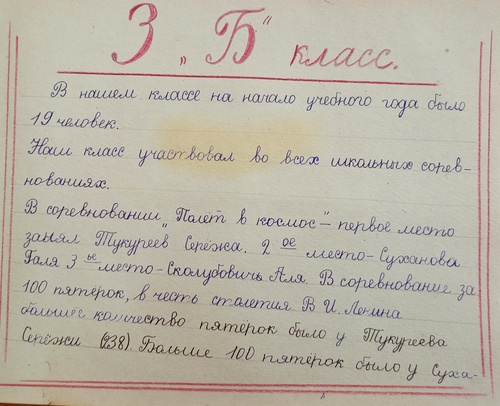 3 „Б“ класс.
В нашем классе на начало учебного года было
19 человек.
Наш класс участвовал во всех школьных сорев-
нованиях.
В соревновании „Полёт в космос“ – первое место
занял Тукуреев Серёжа. 2 ое место-Суханова
Галя 3 ье место-Сколубович Аля. В соревнование за
100 пятёрок, в честь столетия В. И. Ленина
большее количество пятёрок было у Тукуреева
Серёжи (238). Больше 100 пятёрок было у Суха-